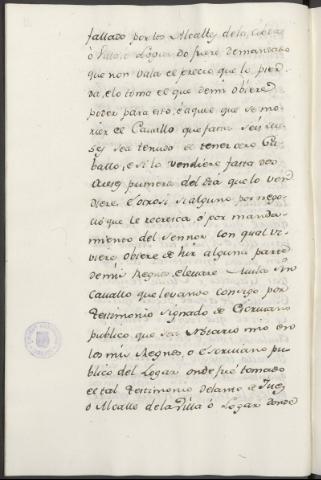 fallado por los Alcalles de la Cibdad
ó Villa, ó Logar do fuere demandado
que non vala el precio que lo pier-
da, e lo tome el que de mi obiere
poder para esto, e aquel que se mo-
riere el Cavallo que fasta Seis me-
ses sea tenudo de tener otro Ca-
ballo, e si lo vendiere fasta dos
meses primera del dia que lo ven-
diere. E otrosi si alguno por nego-
cio que le recresca, ó por manda-
miento del Sennor con qual vi-
viere obiere de hir alguna parte
de mis Regnos, e levare Mula sin
Cavallo que levando consigo por
testimonio signado de Escrivano
publico que sea Notario mio en
los mis Regnos, o Escrivano pu-
blico del Logar onde fué tomado
el tal testimonio delante Juez
ó Alcalle de la Villa ó Logar donde